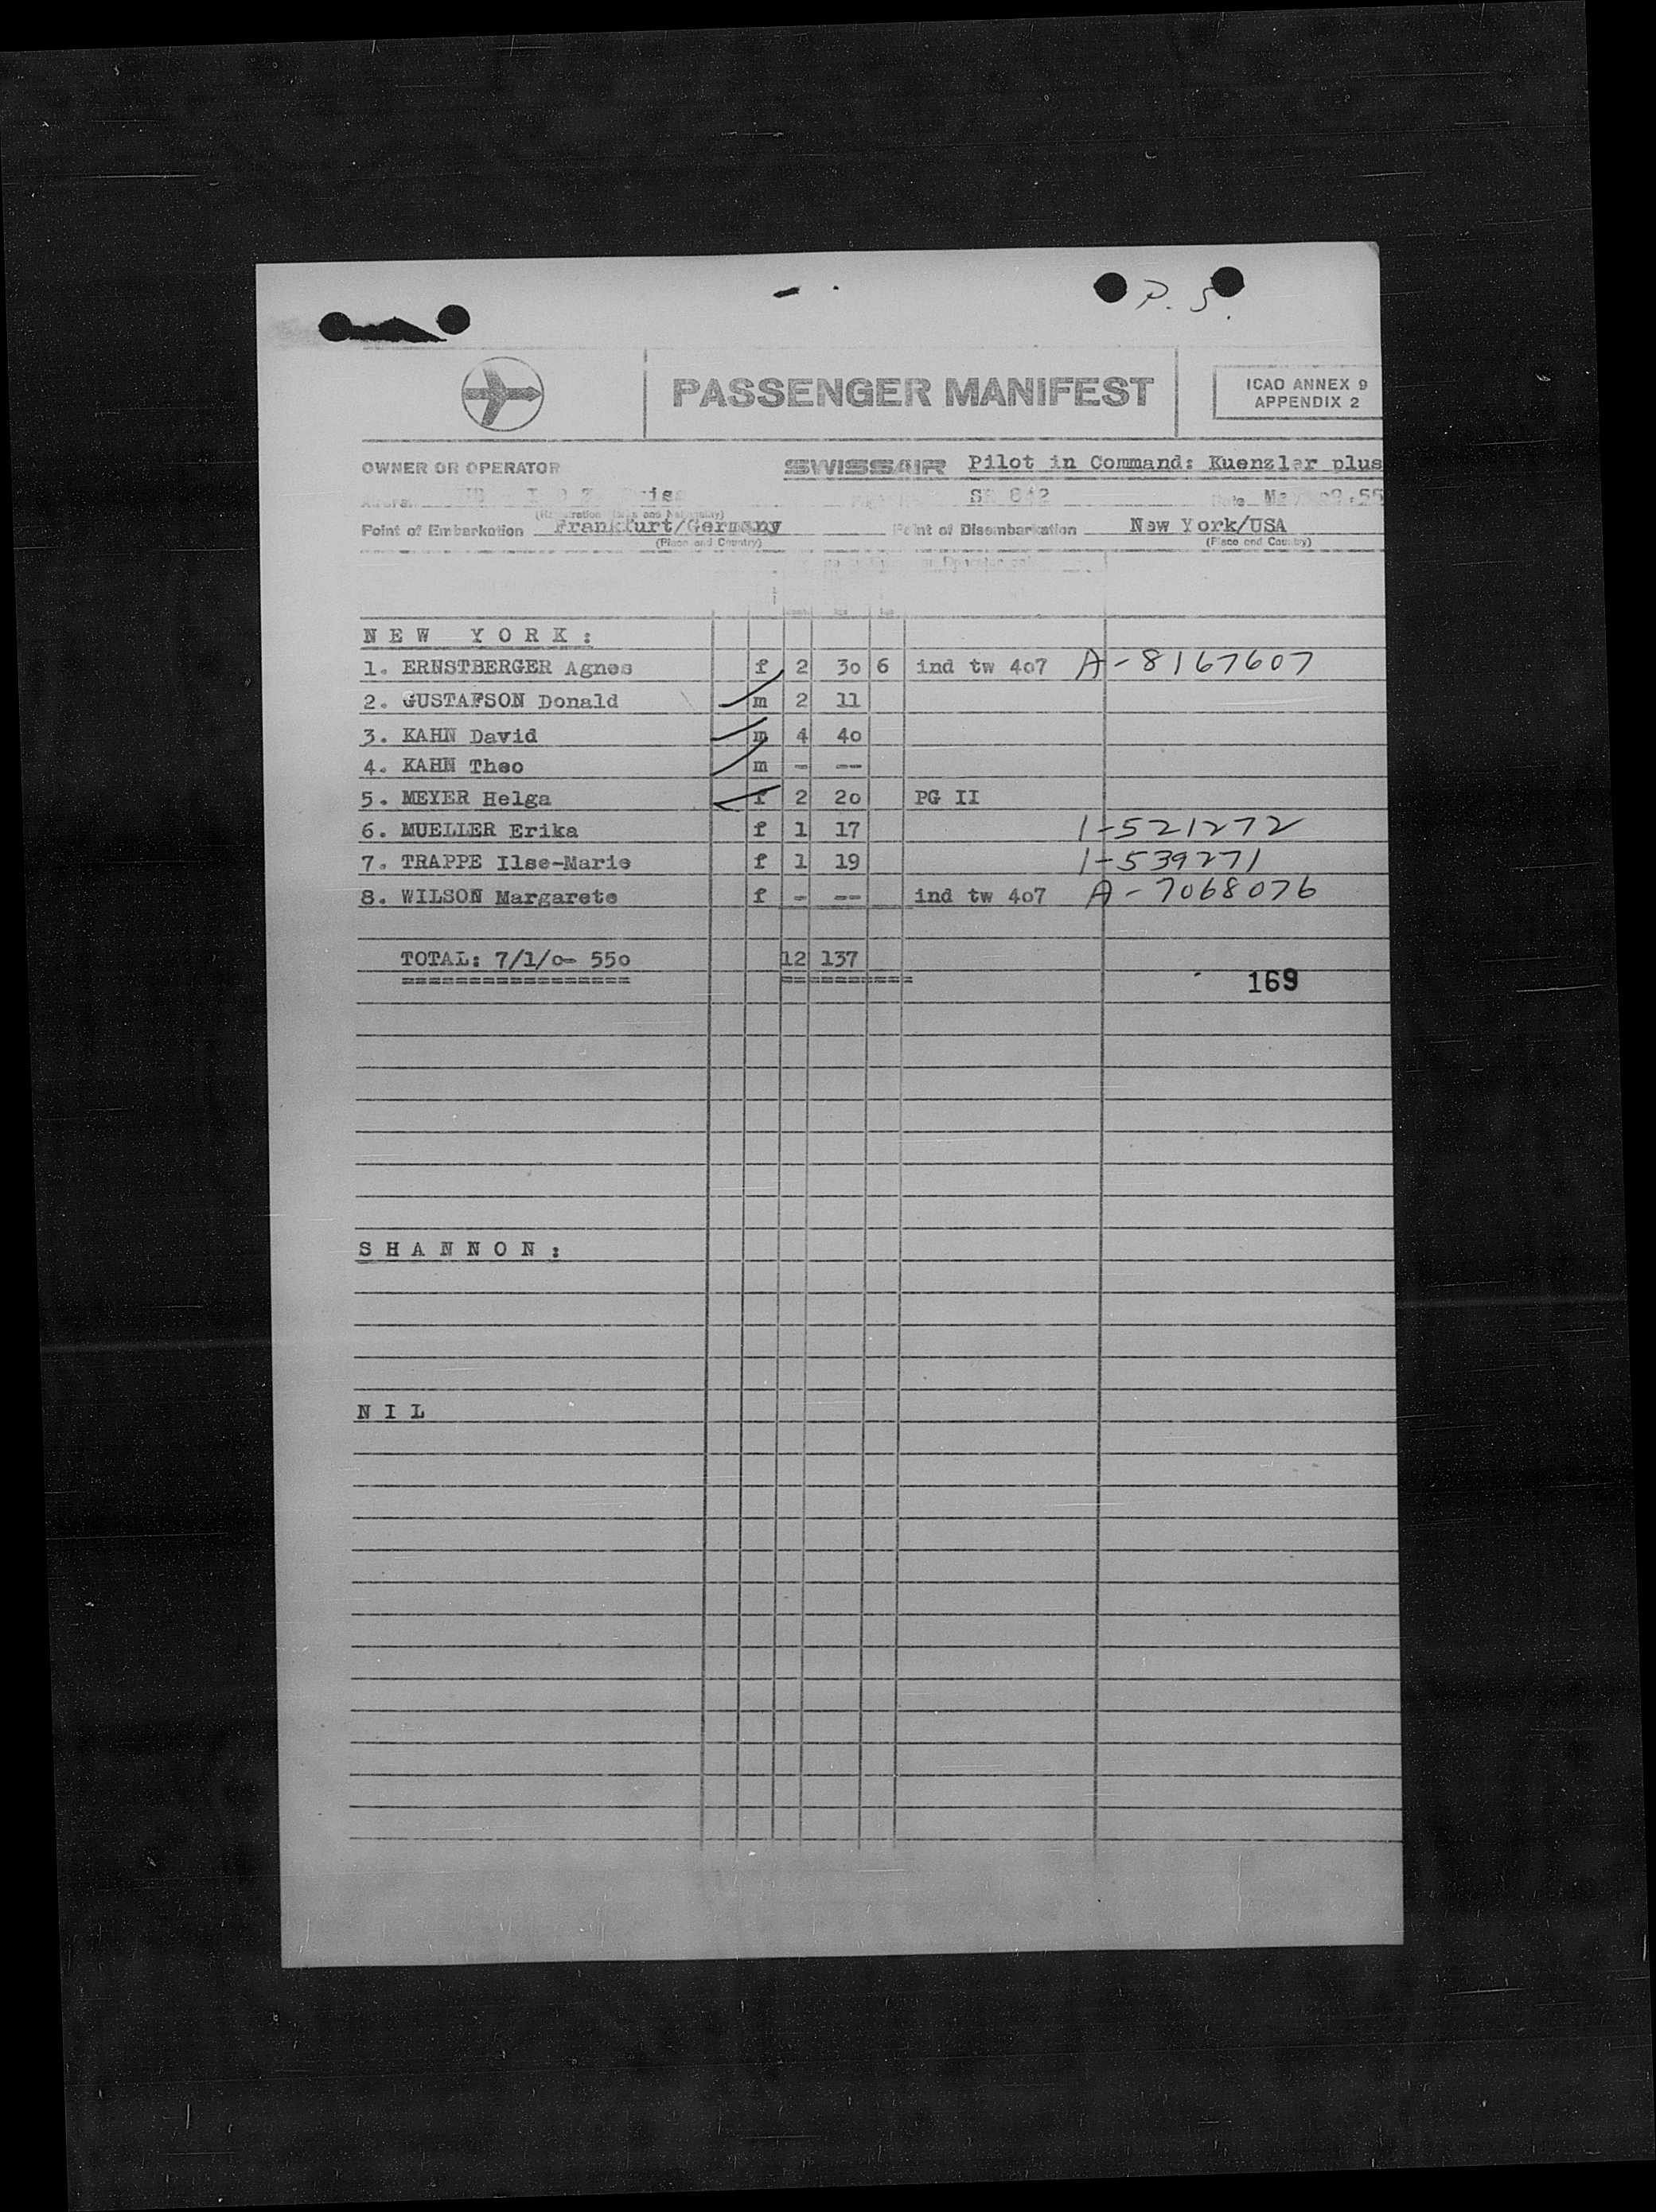 P. 5.
PASSENGER MANIFEST
ICAO ANNEX 9
APPENDIX 2
OWNER OR OPERATOR SWISSAIR Pilot in Command: Kuenzler plus
SR 842
Point of Embarkation Frankfurt/Germany Point of Disembarkation New York/USA
(Place and Country) (Place and Country)
N E W Y O R K :
1. ERNSTBERGER Agnes f 2 3o 6 ind tw 4o7 A-8167607
2. GUSTAFSON Donald m 2 11
3. KAHN David m 4 4o
4. KAHN Theo m - --
5. MEYER Helga f 2 2o PG II
6. MUELLER Erika f 1 17 1-521272
7. TRAPPE Ilse-Marie f 1 19 1-539271
8. WILSON Margarete f - -- ind tw 4o7 A-7068076
TOTAL: 7/1/o- 55o 12 137
================= ==========
169
S H A N N O N :
N I L